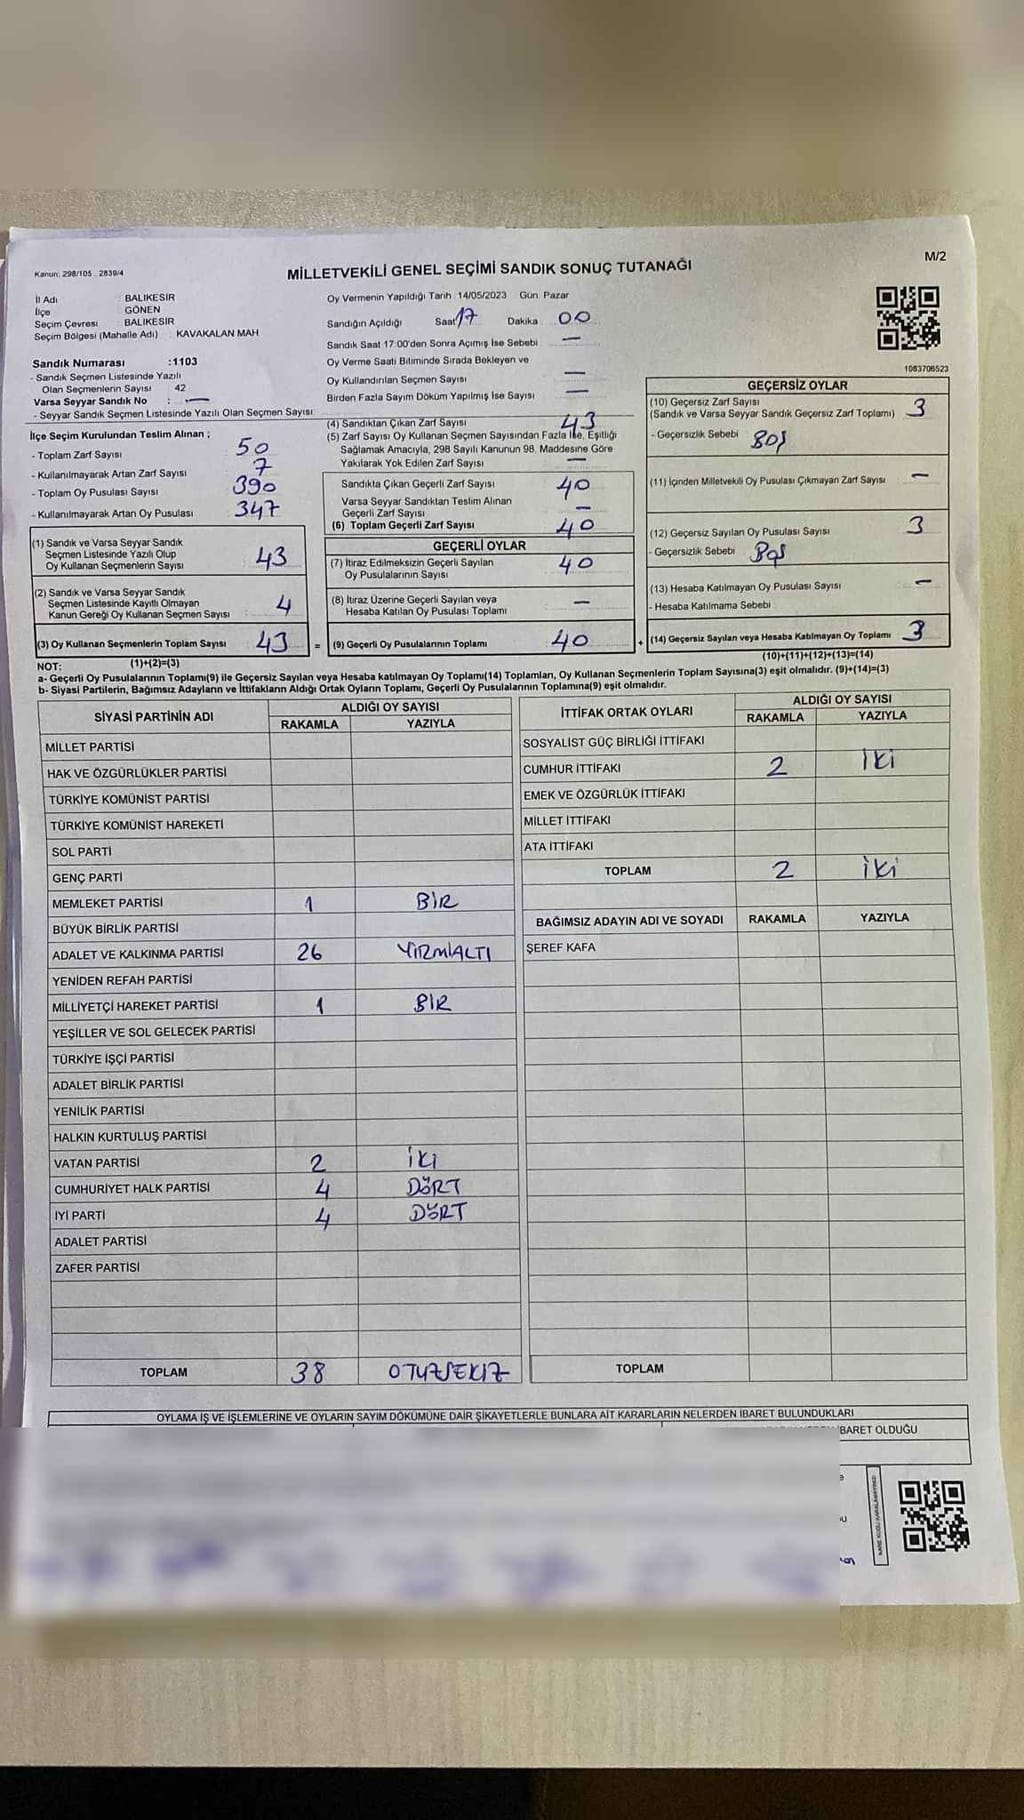 Kanun: 298/105 . 2839/4
MİLLETVEKİLİ GENEL SEÇİMİ SANDIK SONUÇ TUTANAĞI
M/2
İl Adı : BALIKESİR
İlçe : GÖNEN
Seçim Çevresi : BALIKESİR
Seçim Bölgesi (Mahalle Adı) : KAVAKALAN MAH
Sandık Numarası :1103
- Sandık Seçmen Listesinde Yazılı
Olan Seçmenlerin Sayısı : 42
Varsa Seyyar Sandık No : —
- Seyyar Sandık Seçmen Listesinde Yazılı Olan Seçmen Sayısı
Oy Vermenin Yapıldığı Tarih 14/05/2023 Gün Pazar
Sandığın Açıldığı Saat 17 Dakika 00
Sandık Saat 17:00'den Sonra Açımış İse Sebebi —
Oy Verme Saati Bitiminde Sırada Bekleyen ve
Oy Kullandırılan Seçmen Sayısı —
Birden Fazla Sayım Döküm Yapılmış İse Sayısı —
1083706523
İlçe Seçim Kurulundan Teslim Alınan ;
- Toplam Zarf Sayısı 50
- Kullanılmayarak Artan Zarf Sayısı 7
- Toplam Oy Pusulası Sayısı 390
- Kullanılmayarak Artan Oy Pusulası 347
(1) Sandık ve Varsa Seyyar Sandık
Seçmen Listesinde Yazılı Olup
Oy Kullanan Seçmenlerin Sayısı 43
(2) Sandık ve Varsa Seyyar Sandık
Seçmen Listesinde Kayıtlı Olmayan
Kanun Gereği Oy Kullanan Seçmen Sayısı 4
(3) Oy Kullanan Seçmenlerin Toplam Sayısı 43 =
(4) Sandıktan Çıkan Zarf Sayısı 43
(5) Zarf Sayısı Oy Kullanan Seçmen Sayısından Fazla İse, Eşitliği
Sağlamak Amacıyla, 298 Sayılı Kanunun 98. Maddesine Göre
Yakılarak Yok Edilen Zarf Sayısı —
Sandıkta Çıkan Geçerli Zarf Sayısı 40
Varsa Seyyar Sandıktan Teslim Alınan
Geçerli Zarf Sayısı —
(6) Toplam Geçerli Zarf Sayısı 40
GEÇERLİ OYLAR
(7) İtiraz Edilmeksizin Geçerli Sayılan
Oy Pusulalarının Sayısı 40
(8) İtiraz Üzerine Geçerli Sayılan veya
Hesaba Katılan Oy Pusulası Toplamı —
(9) Geçerli Oy Pusulalarının Toplamı 40 +
GEÇERSİZ OYLAR
(10) Geçersiz Zarf Sayısı
(Sandık ve Varsa Seyyar Sandık Geçersiz Zarf Toplamı) 3
- Geçersizlik Sebebi BOŞ
(11) İçinden Milletvekili Oy Pusulası Çıkmayan Zarf Sayısı —
(12) Geçersiz Sayılan Oy Pusulası Sayısı 3
- Geçersizlik Sebebi BOŞ
(13) Hesaba Katılmayan Oy Pusulası Sayısı —
- Hesaba Katılmama Sebebi
(14) Geçersiz Sayılan veya Hesaba Katılmayan Oy Toplamı 3
NOT: (1)+(2)=(3) (10)+(11)+(12)+(13)=(14)
a- Geçerli Oy Pusulalarının Toplamı(9) ile Geçersiz Sayılan veya Hesaba katılmayan Oy Toplamı(14) Toplamları, Oy Kullanan Seçmenlerin Toplam Sayısına(3) eşit olmalıdır. (9)+(14)=(3)
b- Siyasi Partilerin, Bağımsız Adayların ve İttifakların Aldığı Ortak Oyların Toplamı, Geçerli Oy Pusulalarının Toplamına(9) eşit olmalıdır.
SİYASİ PARTİNİN ADI ALDIĞI OY SAYISI
RAKAMLA YAZIYLA
MİLLET PARTİSİ
HAK VE ÖZGÜRLÜKLER PARTİSİ
TÜRKİYE KOMÜNİST PARTİSİ
TÜRKİYE KOMÜNİST HAREKETİ
SOL PARTİ
GENÇ PARTİ
MEMLEKET PARTİSİ 1 BİR
BÜYÜK BİRLİK PARTİSİ
ADALET VE KALKINMA PARTİSİ 26 YİRMİALTI
YENİDEN REFAH PARTİSİ
MİLLİYETÇİ HAREKET PARTİSİ 1 BİR
YEŞİLLER VE SOL GELECEK PARTİSİ
TÜRKİYE İŞÇİ PARTİSİ
ADALET BİRLİK PARTİSİ
YENİLİK PARTİSİ
HALKIN KURTULUŞ PARTİSİ
VATAN PARTİSİ 2 İKİ
CUMHURİYET HALK PARTİSİ 4 DÖRT
İYİ PARTİ 4 DÖRT
ADALET PARTİSİ
ZAFER PARTİSİ
TOPLAM 38 OTUZSEKİZ
İTTİFAK ORTAK OYLARI ALDIĞI OY SAYISI
RAKAMLA YAZIYLA
SOSYALİST GÜÇ BİRLİĞİ İTTİFAKI
CUMHUR İTTİFAKI 2 İKİ
EMEK VE ÖZGÜRLÜK İTTİFAKI
MİLLET İTTİFAKI
ATA İTTİFAKI
TOPLAM 2 İKİ
BAĞIMSIZ ADAYIN ADI VE SOYADI RAKAMLA YAZIYLA
ŞEREF KAFA
TOPLAM
OYLAMA İŞ VE İŞLEMLERİNE VE OYLARIN SAYIM DÖKÜMÜNE DAİR ŞİKAYETLERLE BUNLARA AİT KARARLARIN NELERDEN İBARET BULUNDUKLARI
İBARET OLDUĞU